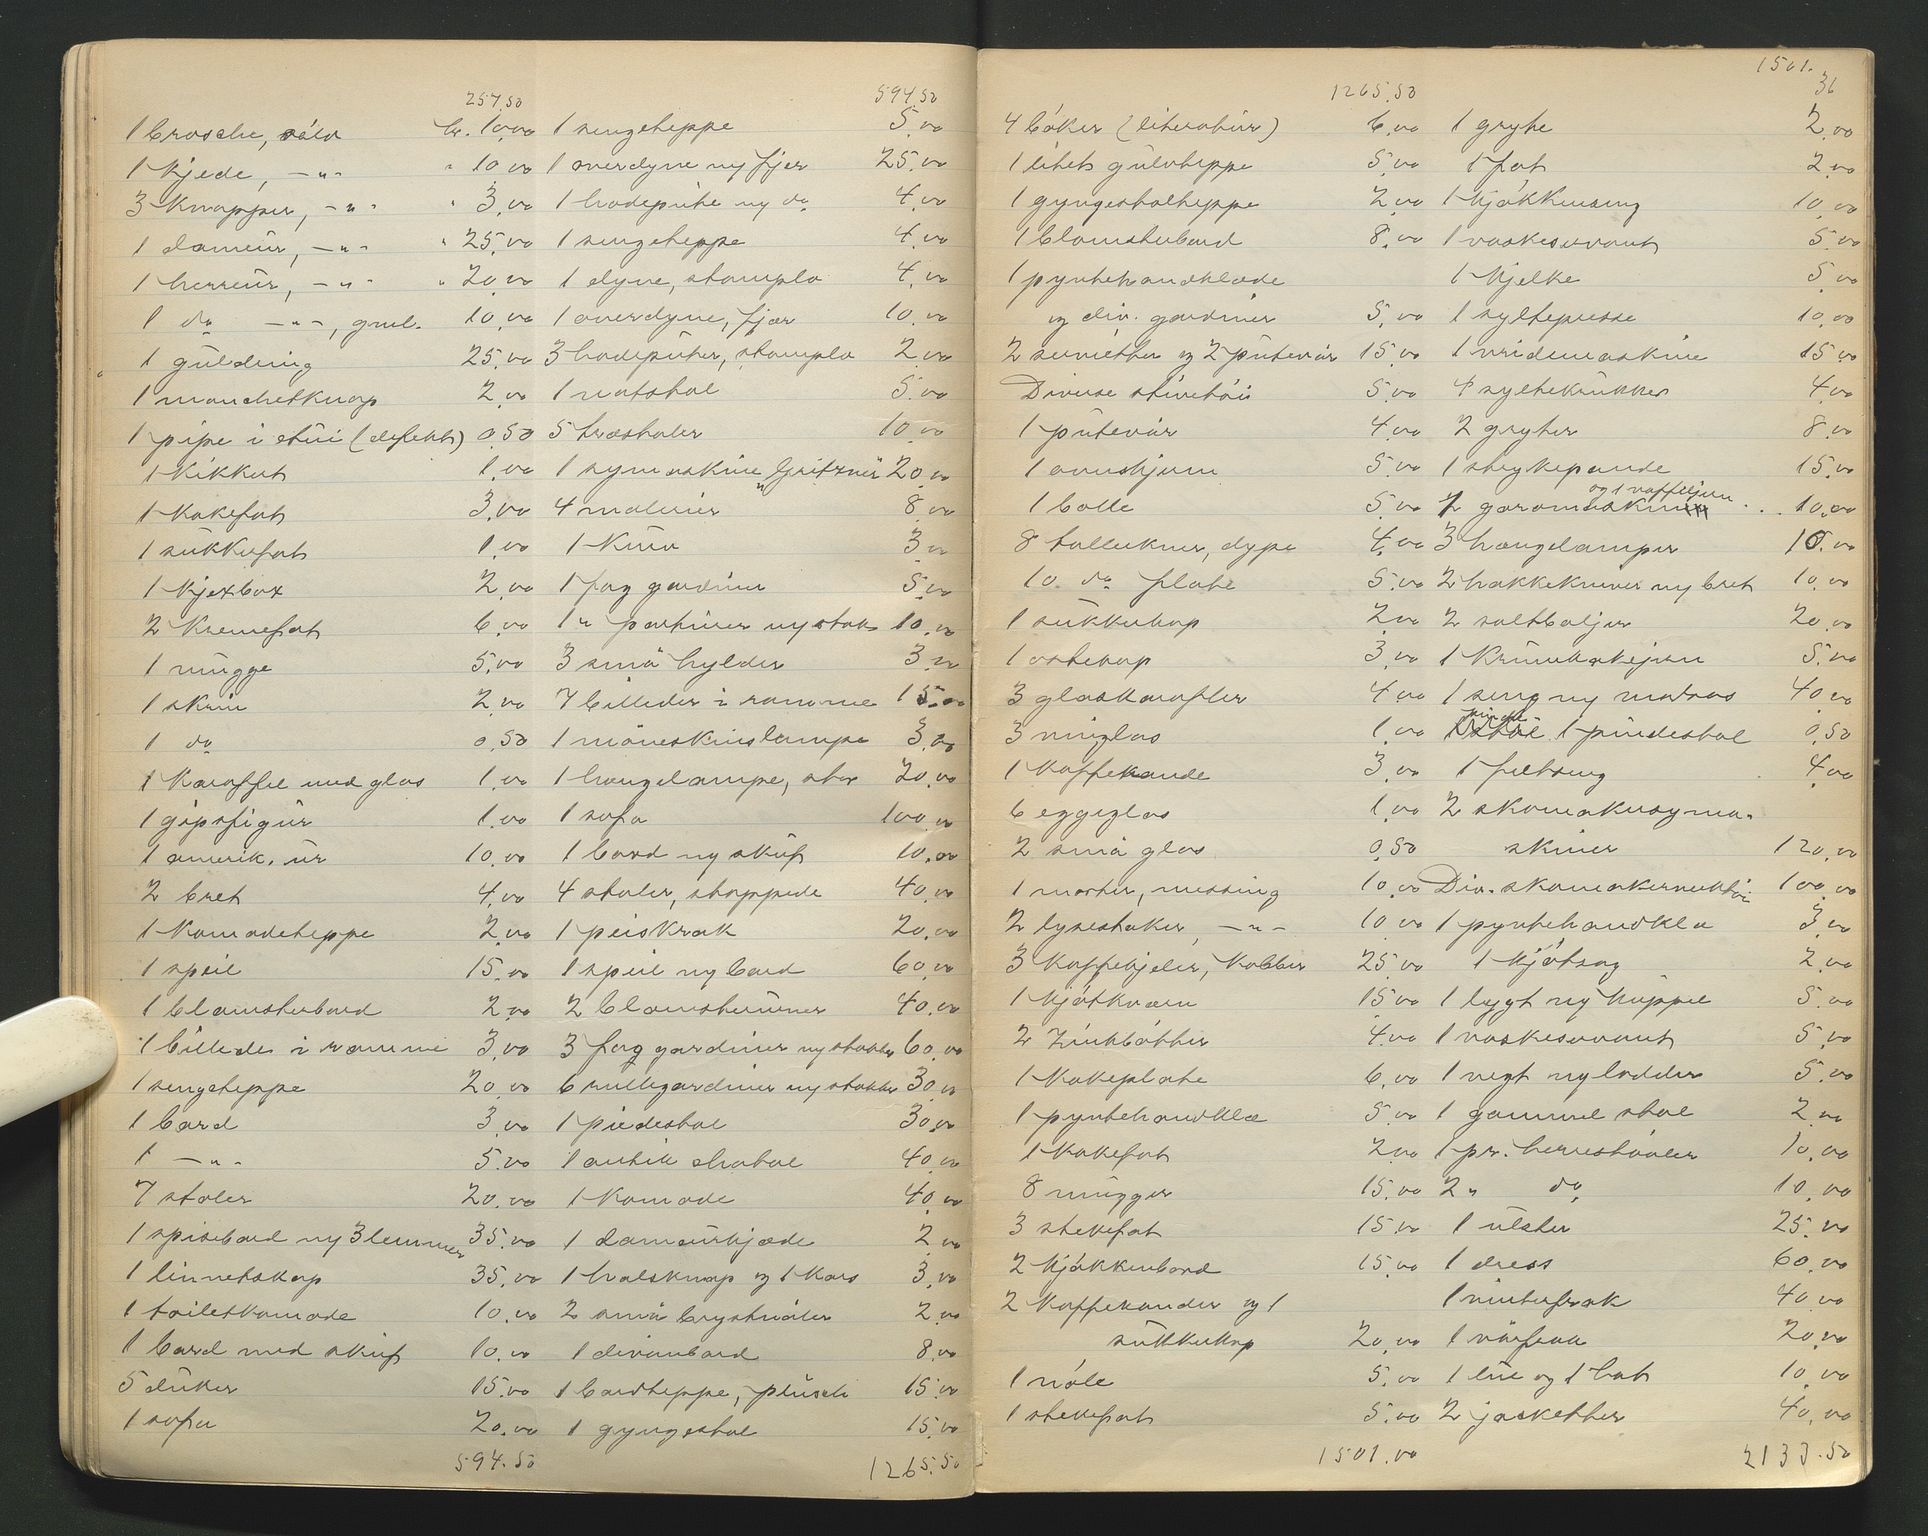 257,50
1 brosche, sølv kr. 10,00
1 kjede, —"— " 10,00
3 knapper, —"— " 3,00
1 dameur, —"— " 25,00
1 herreur, —"— " 20,00
1 do —"—, gml. 10,00
1 guldring 25,00
1 manchetknap 2,00
1 pipe i etui (defekt) 0,50
1 kikkert 1,00
1 kakefat 3,00
1 sukkerfat 1,00
1 kjexbox 2,00
2 kremefat 6,00
1 mugge 5,00
1 skrin 2,00
1 do 0,50
1 karaffel med glas 1,00
1 gipsfigur 1,00
1 amerik. ur 10,00
2 bret 4,00
1 komodeteppe 2,00
1 speil 15,00
1 blomsterbord 2,00
1 billede i ramme 3,00
1 sengeteppe 20,00
1 bord 3,00
1 —"— 5,00
7 stoler 20,00
1 spisebord m/ 3 lemmer 35,00
1 linnetskap 35,00
1 toiletkomode 10,00
1 bord med skuf 10,00
5 duker 15,00
1 sofa 20,00
594.50
594,50
1 sengeteppe 5,00
1 overdyne m/ fjær 25,00
1 hodepute m/ do 4,00
1 sengeteppe 4,00
1 dyne, stamplo 4,00
1 overdyne, fjær 10,00
3 hodeputer, stamplo 2,00
1 natstol 5,00
5 træstoler 10,00
1 symaskine "Gritzner 20,00
4 malerier 8,00
1 kurv 3,00
1 fag gardiner 5,00
1 " portierer m/ stok 10,00
3 små hylder 3,00
7 billeder i ramme 15,00
1 måneskinslampe 3,00
1 hængelampe, stor 20,00
1 sofa 100,00
1 bord m/ skuf 10,00
4 stoler, stoppede 40,00
1 peiskrak 20,00
1 speil m/ bord 60,00
2 blomsterurner 40,00
3 fag gardiner m/ stokker 60,00
6 rullegardiner m/ stokker 30,00
1 piedestal 30,00
1 antik chatol 40,00
1 komode 40,00
1 dameurkjæde 2,00
1 halsknap og 1 kors 3,00
2 små brystnåler 2,00
1 divanbord 8,00
1 bordteppe, plusch 15,00
1 gyngestol 15,00
1265.50
1265.50
4 bøker (literatur) 6,00
1 litet gulvteppe 5,00
1 gyngestolteppe 2,00
1 blomsterbord 8,00
1 pyntehandklæde
og div. gardiner 5,00
2 servietter og 2 putevar 15,00
Diverse stivetøi 5,00
1 putevar 4,00
1 ovnskjerm 5,00
1 bolle 5,00
8 tallerkner, dype 4,00
10 do flate 5,00
1 sukkerkop 2,00
1 ostekop 3,00
3 glaskarafler 4,00
3 vinglas 1,00
1 kaffekande 3,00
6 eggeglas 1,00
2 små glas 0,50
1 morter, messing 10,00
2 lysestaker, —"— 10,00
3 kaffekjeler, kobber 25,00
1 kjøtkvern 15,00
2 zinkbøtter 4,00
1 kakeplate 6,00
1 pyntehandklæ 5,00
1 kakefat 2,00
8 mugger 15,00
3 stekefat 15,00
2 kjøkkenbord 15,00
2 kaffekander og 1
sukkerkop 20,00
1 nåle 5,00
1 stekefat 5,00
1501.00
1501.
36
1 gryte 2,00
1 fat 2,00
1 kjøkkenseng 10,00
1 vaskeservant 5,00
1 kjelke 5,00
1 syltepresse 10,00
1 vridemaskine 15,00
4 syltekrukker 4,00
2 gryter 8,00
1 strykepande 15,00
og 1 vaffeljern
1 goromaskine .. 10,00
3 hængelamper 10,00
2 hakkekniver m/ bret 10,00
2 saltbaljer 20,00
1 krumkakejern 5,00
1 seng m/ matras 40,00
1 pindestol 0,50
1 feltseng 4,00
2 skomakersyma-
skiner 120,00
Div. skomakerverktøi 100,00
1 pyntehandklæ 3,00
1 kjøtsag 2,00
1 lygt m/ kuppel 5,00
1 vaskeservant 5,00
1 vegt m/ lodder 5,00
1 gammel stol 2,00
1 pr. herrestøvler 10,00
2 " do 10,00
1 ulster 25,00
1 dress 60,00
1 vinterfrak 40,00
1 vårfrak 20,00
1 lue og 1 hat 10,00
2 jaketter 40,00
2133.50